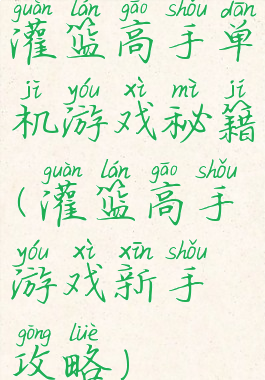 guàn lán gāo shǒu dān
灌篮高手单
jī yóu xì mì jí
机游戏秘籍
guàn lán gāo shǒu
(灌篮高手
yóu xì xīn shǒu
游戏新手
gōng lüè
攻略)